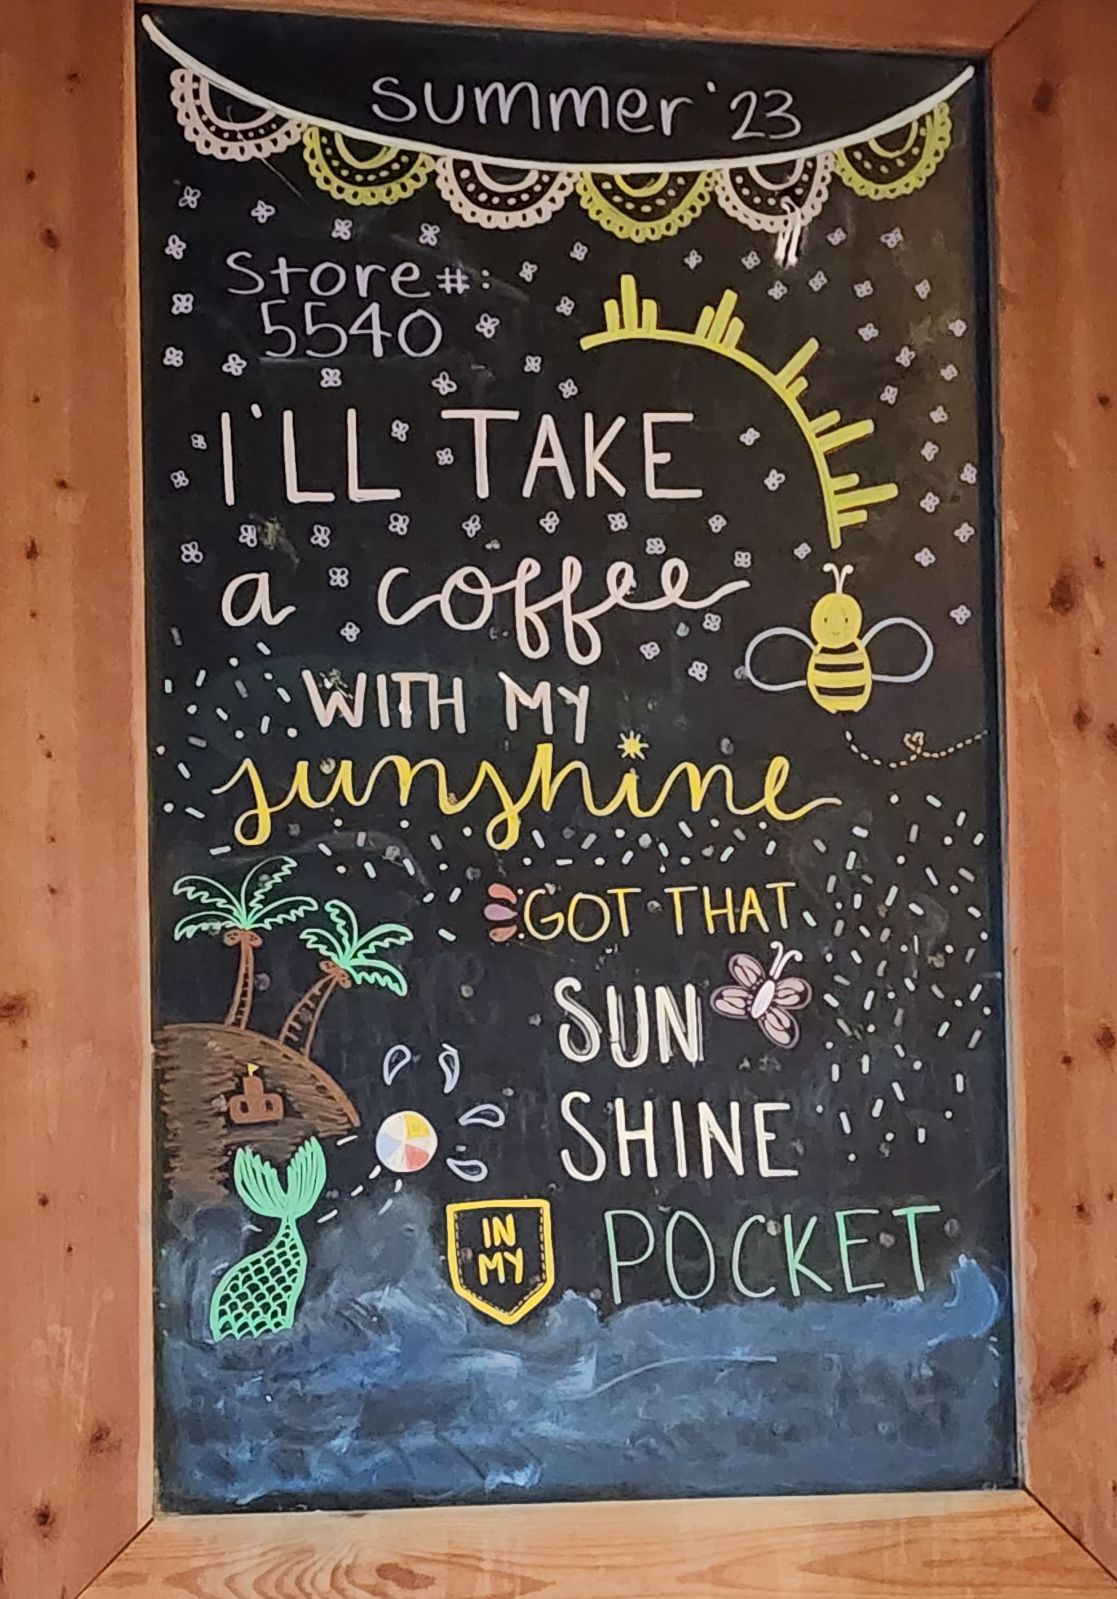 summer '23
Store#:
5540
I'LL TAKE
a coffee
WITH MY
sunshine
GOT THAT
SUN
SHINE
IN
MY
POCKET